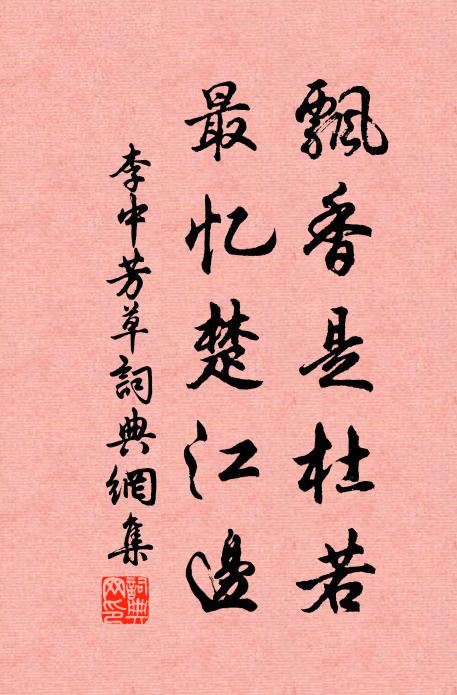 飄香是杜若
最忆楚江邊
李中芳草詞典網集
詞典網印